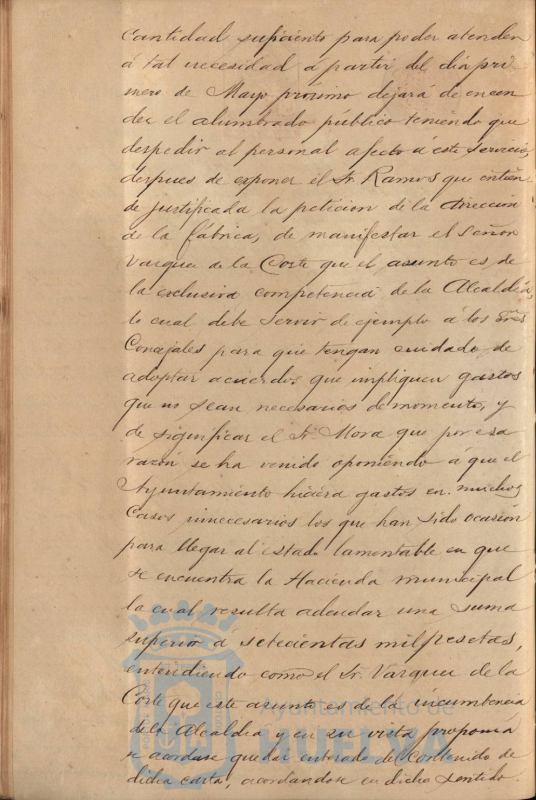 cantidad suficiente para poder atender
á tal necesidad á partir del dia pri
mero de Mayo próximo dejará de encen
der el alumbrado público teniendo que
despedir al personal afecto á este servicio,
despues de exponer el Sr. Ramos que entien
de justificada la peticion de la direccion
de la fábrica, de manifestar el Señor
Vazquez de la Corte que el asunto es de
la exclusiva competencia de la Alcaldía,
lo cual debe servir de ejemplo á los Sres
Concejales para que tengan cuidado de
adoptar acuerdos que impliquen gastos
que no sean necesarios de momento, y
de significar el Sr. Mora que por esa
razón se ha venido oponiendo á que el
Ayuntamiento hiciera gastos en muchos
casos innecesarios los que han sido ocasión
para llegar al estado lamentable en que
se encuentra la Hacienda municipal
la cual resulta adeudar una suma
superior á setecientas mil pesetas,
entendiendo como el Sr. Vazquez de la
Corte que este asunto es de la incumbencia
de la Alcaldía y en su vista proponia
se acordase quedar enterado del contenido de
dicha carta, acordandose en dicho sentido.
Ayuntamiento de
HUELVA